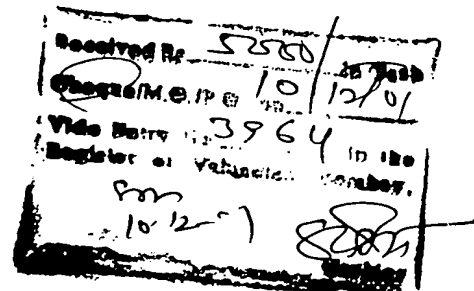 Received Rs. 52500/ in Cash
Cheque/M.O./P.O. 10/12/01
Vide Entry No. 3964 in the
Register of Valuables
10-12-
Cashier